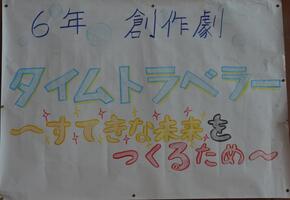 6年 創作劇
タイムトラベラー
～すてきな未来を
つくるため～